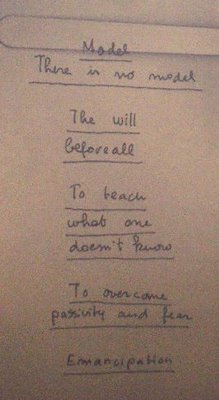 Model
There is no model
The will
before all
To teach
what one
doesn't know
To overcome
passivity and fear
Emancipation